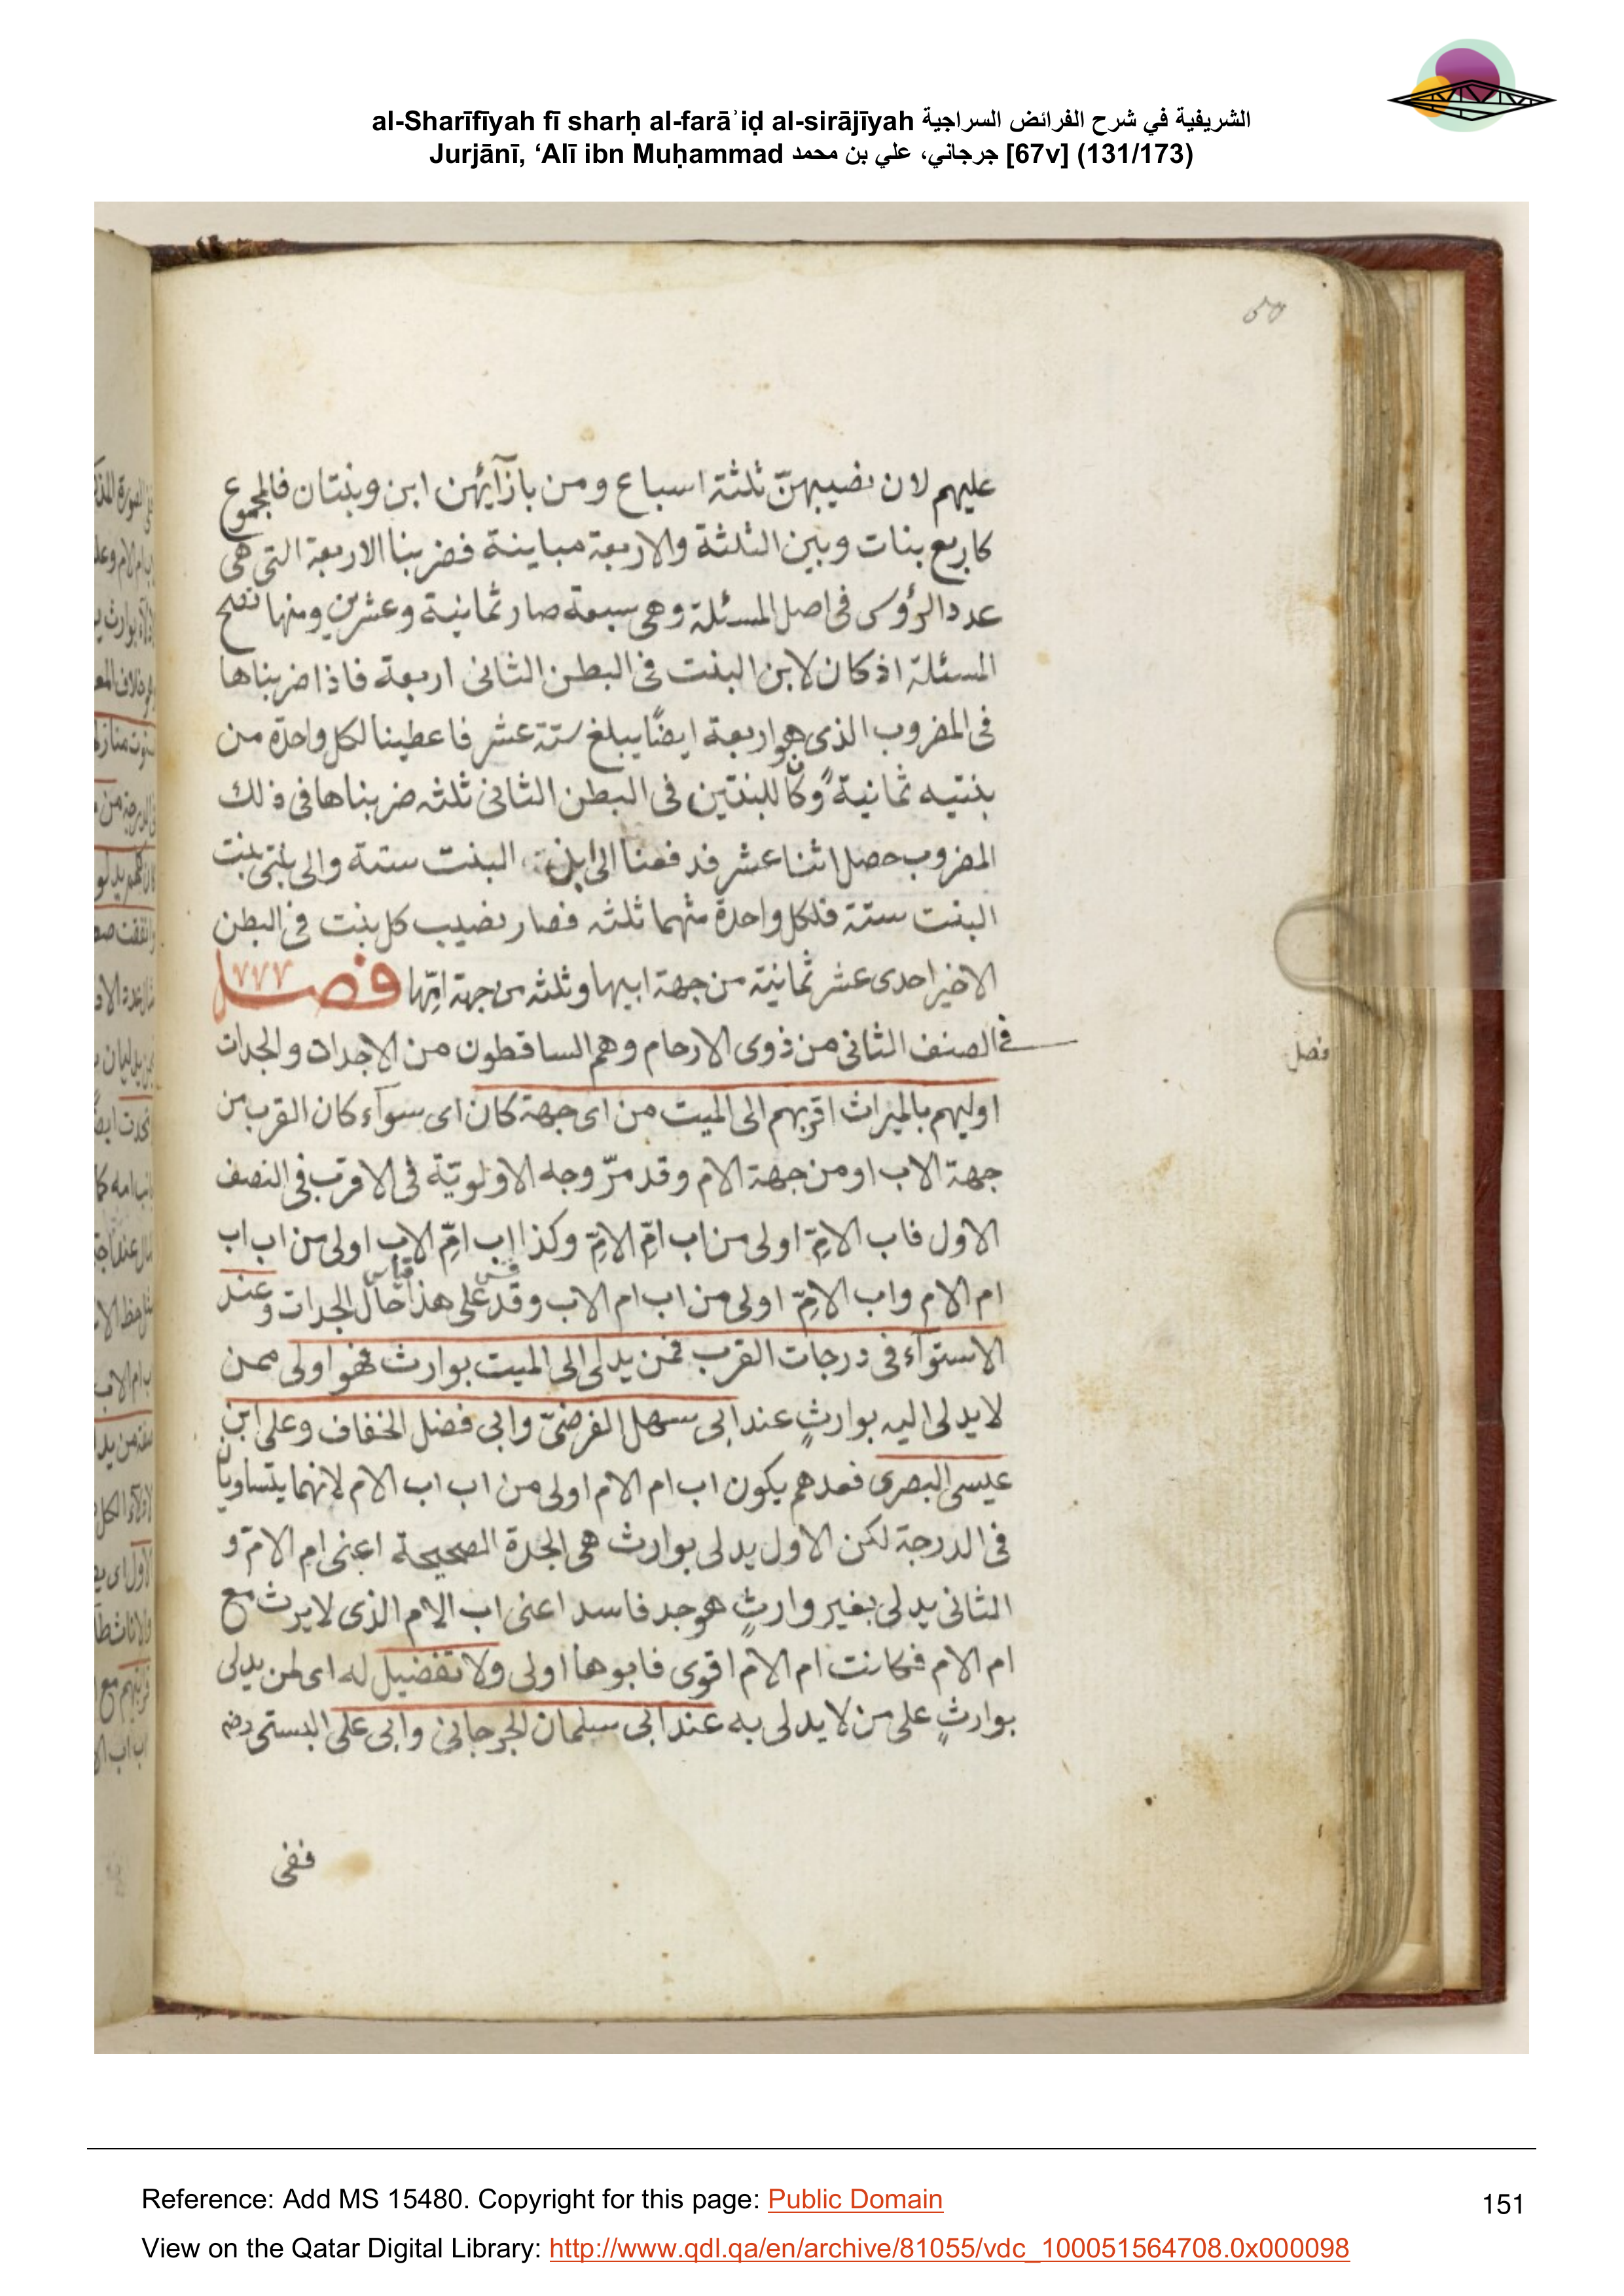 al-Sharīfīyah fī sharḥ al-farāʾiḍ al-sirājīyah الشريفية في شرح الفرائض السراجية
Jurjānī, ‘Alī ibn Muḥammad جرجاني، علي بن محمد [67v] (131/173)
عليهم لان نصيبهنّ ثلثة اسباع ومن بازآئهن ابن وبنتان فالمجموع
كاربع بنات وبين الثلثة والاربعة مباينة فضربنا الاربعة التى هى
عدد الرؤوس فى اصل المسئلة وهى سبعة صار ثمانية وعشرين ومنها تصح
المسئلة اذ كان لابن البنت فى البطن الثانى اربعة فاذا ضربناها
فى المضروب الذى هو اربعة ايضًا يبلغ ستة عشر فاعطينا لكل واحدة من
بنتيه ثمانية وكان للبنتين فى البطن الثانى ثلثه ضربناها فى ذلك
المضروب حصل اثنا عشر فدفعنا الى ابن البنت ستة والى بنتى بنت
البنت ستة فلكل واحدة منهما ثلثه فصار نصيب كل بنت فى البطن
الاخير احدى عشر ثمانية من جهة ابيها وثلثه من جهة امّها فصل
فى الصنف الثانى من ذوى الارحام وهم الساقطون من الاجداد والجدات
فصل
اوليهم بالميراث اقربهم الى الميت من اى جهة كان اى سوآء كان القرب من
جهة الاب او من جهة الام وقد مرّ وجه الاولويّة فى الاقرب فى النصف
الاول فاب الامّ اولى من اب امّ الامّ وكذا اب امّ الاب اولى من اب اب
ام الام واب الامّ اولى من اب ام الاب وقد على هذا حال الجدات وعند
الاستوآء فى درجات القرب فمن يدلى الى الميت بوارث فهو اولى ممن
لا يدلى اليه بوارثٍ عند ابى سهل الفرضىّ وابى فضل الخفاف وعلى ابن
عيسى البصرى فعندهم يكون اب ام الام اولى من اب اب الام لانهما يتساويان
فى الدرجة لكن الاول يدلى بوارث هى الجدة الصحيحة اعنى ام الامّ و
الثانى يدلى بغير وارثٍ هو جد فاسد اعنى اب الام الذى لا يرث مع
ام الام فكانت ام الام اقوى فابوها اولى ولا تفضيل له اى لمن يدلى
بوارثٍ على من لا يدلى به عند ابى سليمان الجرجانى وابى على البستى
ففى
Reference: Add MS 15480. Copyright for this page: Public Domain
151
View on the Qatar Digital Library: http://www.qdl.qa/en/archive/81055/vdc_100051564708.0x000098